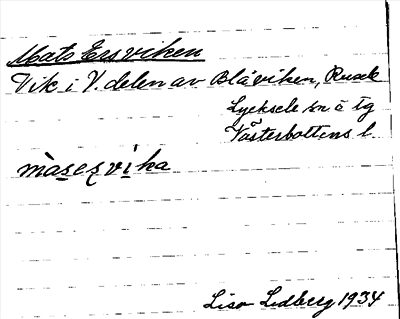 Mats Ersviken
Vik i V. delen av Blåviken, Rusele
Lycksele sn å tg
Västerbottens l.
màsesvika
Lisa Lidberg 1934